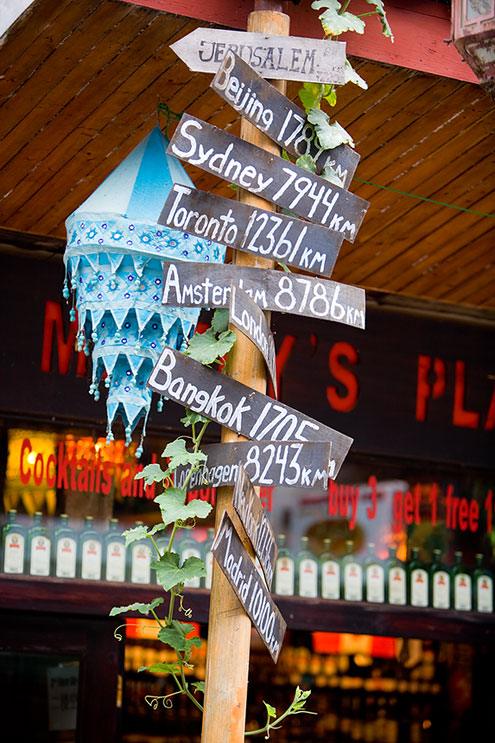 JERUSALEM
Beijing 178 KM
Sydney 7944 KM
Toronto 12361 KM
Amster am 8786 KM
London
Bangkok 1705
8243 KM
Madrid 10100
Y'S PLA
Cocktails and
buy 3 get 1 free